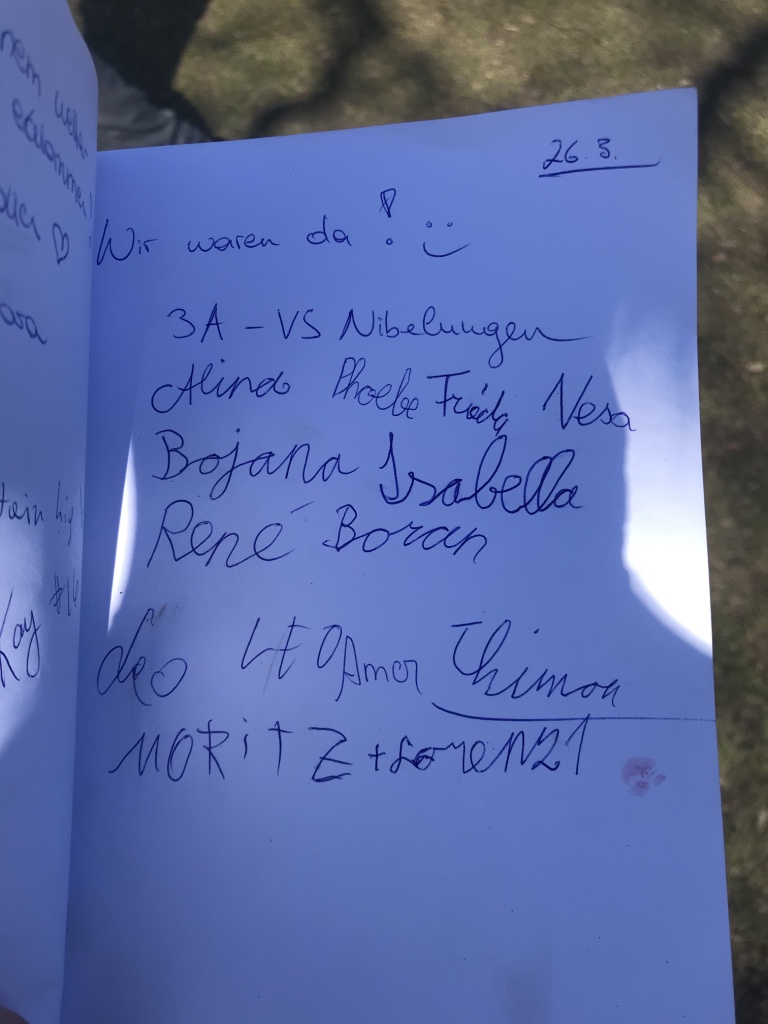 26.3.
Wir waren da !
3A - VS Nibelungen
Alina Phoebe Frieda Vesa
Bojana Isabella
René Boran
Leo LEO Amor Thimon
MORiTZ + LoreNZ